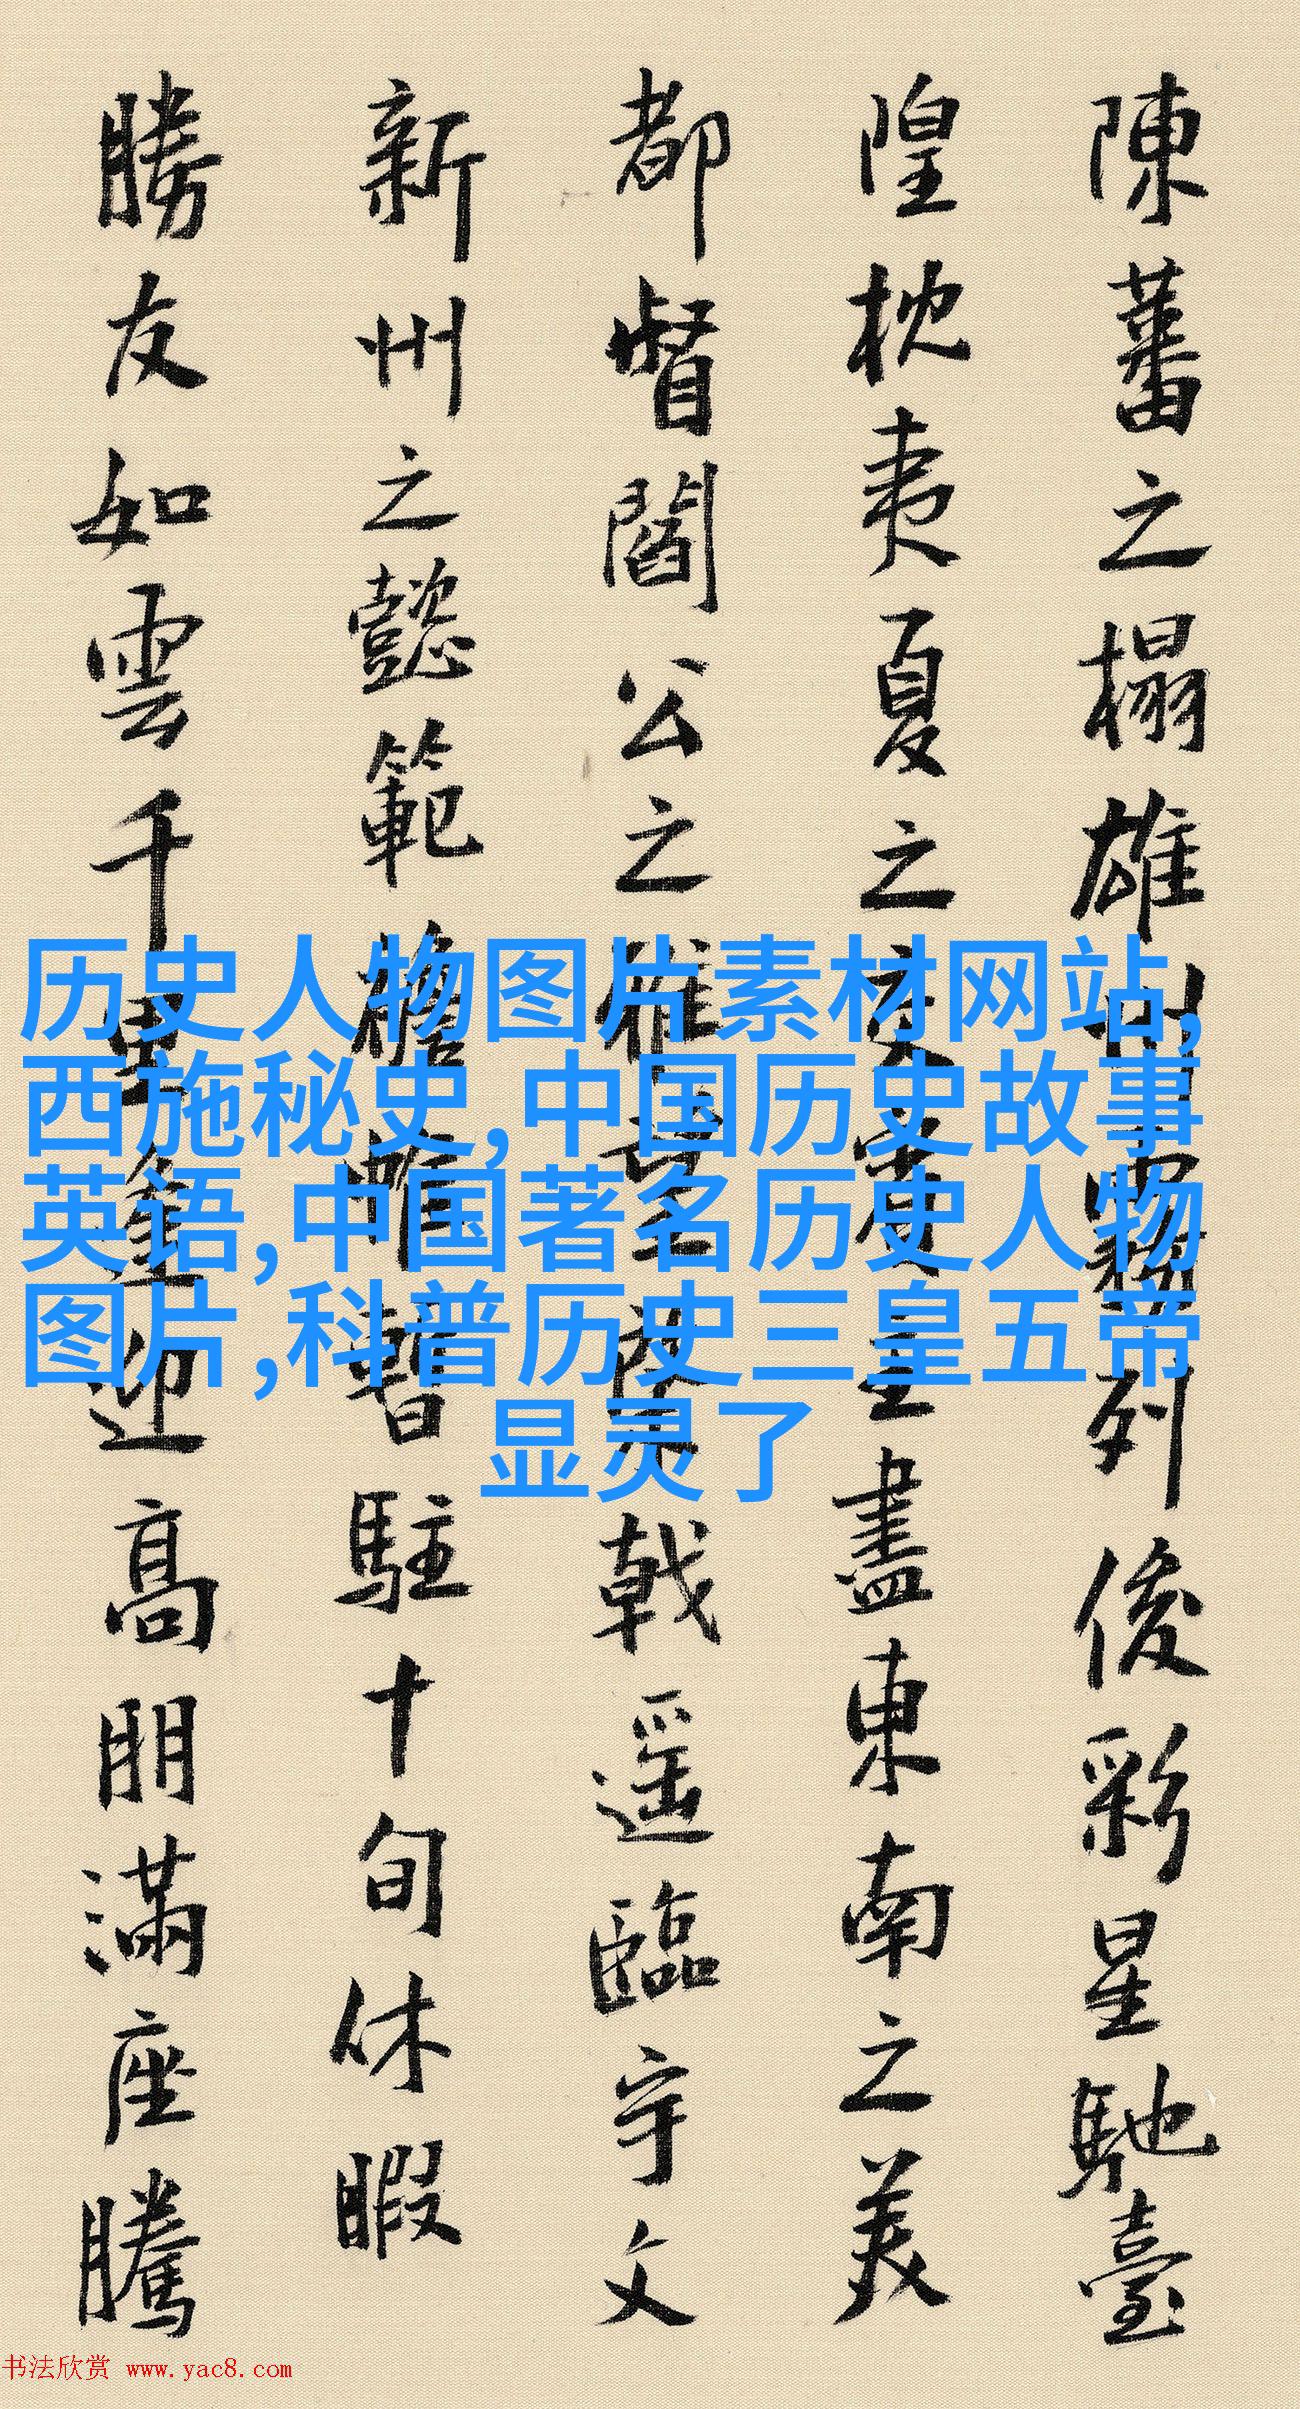 陳蕃之榻雄州霧列俊彩星馳臺
隍枕夷夏之交賓主盡東南之美
都督閻公之雅望棨戟遥臨宇文
新州之懿範襜帷暫駐十旬休暇
勝友如雲千里逢迎高朋滿座騰
历史人物图片素材网站,
西施秘史,中国历史故事
英语,中国著名历史人物
图片,科普历史三皇五帝
显灵了
书法欣赏 www.yac8.com